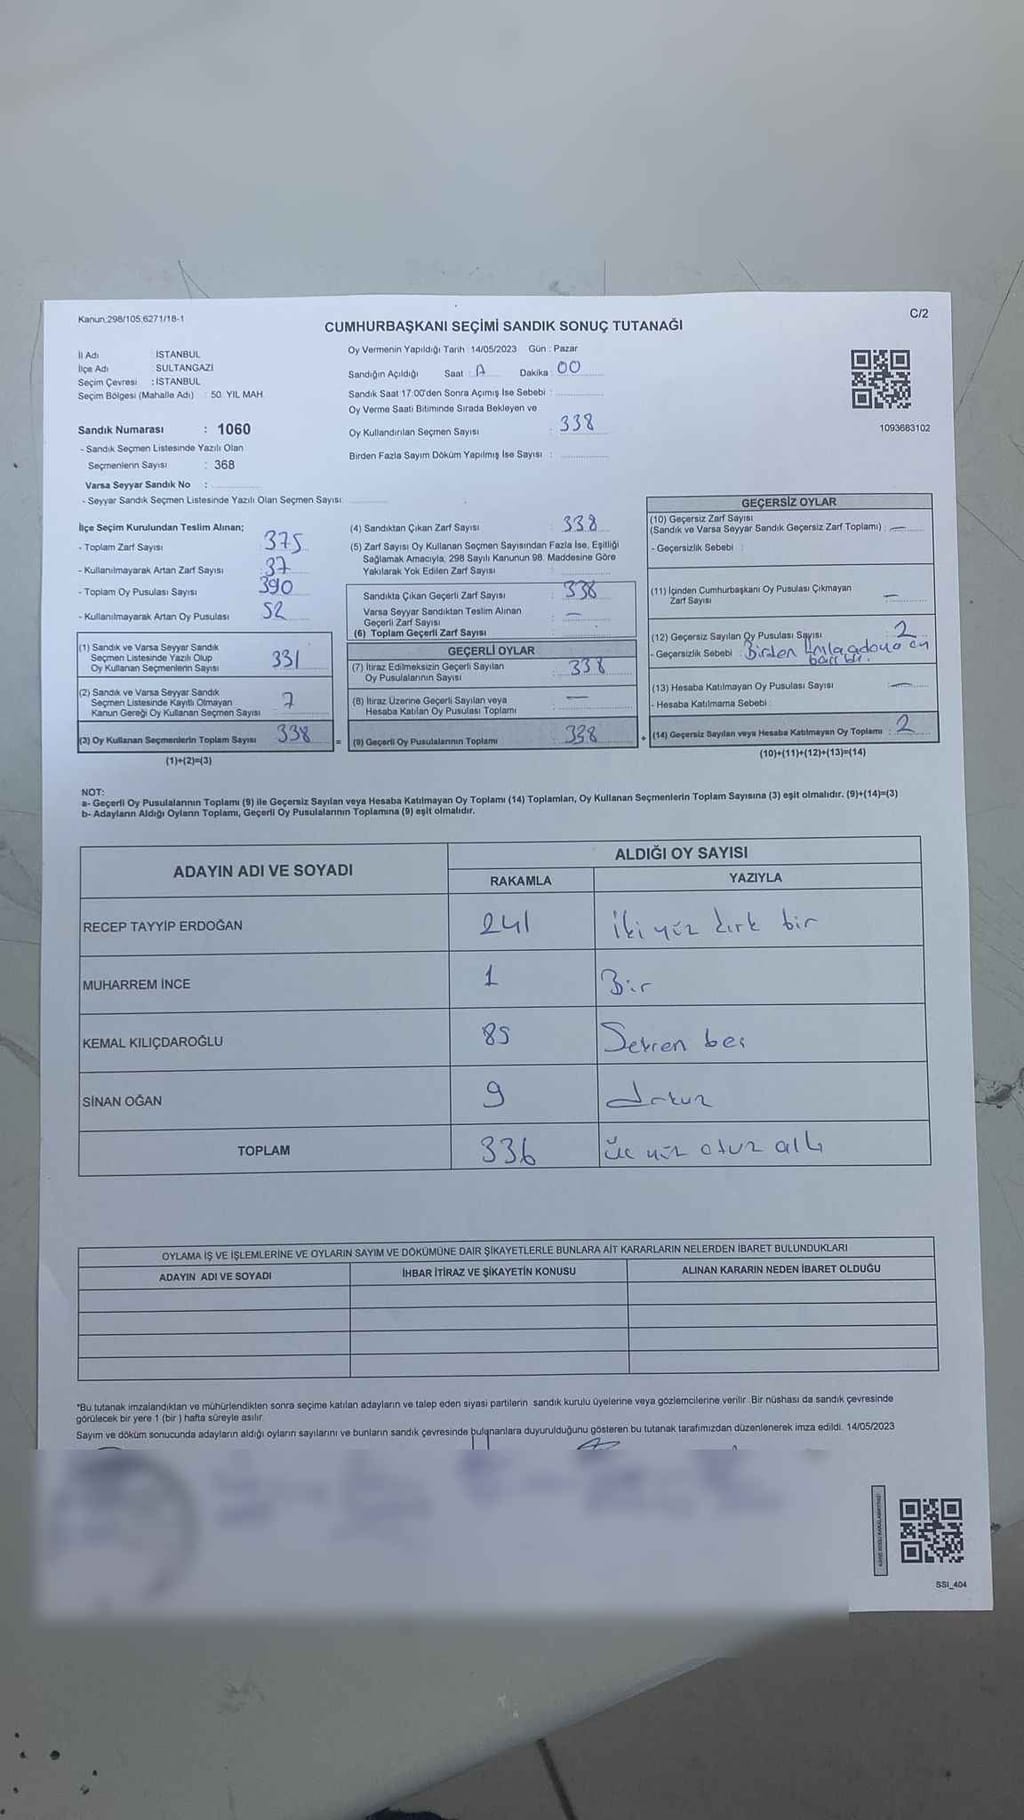 Kanun.298/105.6271/18-1
C/2
CUMHURBAŞKANI SEÇİMİ SANDIK SONUÇ TUTANAĞI
İl Adı İSTANBUL
İlçe Adı SULTANGAZİ
Seçim Çevresi : İSTANBUL
Seçim Bölgesi (Mahalle Adı) : 50. YIL MAH
Sandık Numarası : 1060
- Sandık Seçmen Listesinde Yazılı Olan
Seçmenlerin Sayısı : 368
Varsa Seyyar Sandık No :
- Seyyar Sandık Seçmen Listesinde Yazılı Olan Seçmen Sayısı:
Oy Vermenin Yapıldığı Tarih : 14/05/2023 Gün : Pazar
Sandığın Açıldığı Saat : Dakika : 00
Sandık Saat 17.00'den Sonra Açımış İse Sebebi :
Oy Verme Saati Bitiminde Sırada Bekleyen ve
Oy Kullandırılan Seçmen Sayısı : 338
Birden Fazla Sayım Döküm Yapılmış İse Sayısı :
1093683102
İlçe Seçim Kurulundan Teslim Alınan;
- Toplam Zarf Sayısı : 375
- Kullanılmayarak Artan Zarf Sayısı : 37
- Toplam Oy Pusulası Sayısı : 390
- Kullanılmayarak Artan Oy Pusulası : 52
(1) Sandık ve Varsa Seyyar Sandık
Seçmen Listesinde Yazılı Olup
Oy Kullanan Seçmenlerin Sayısı 331
(2) Sandık ve Varsa Seyyar Sandık
Seçmen Listesinde Kayıtlı Olmayan
Kanun Gereği Oy Kullanan Seçmen Sayısı 7
(3) Oy Kullanan Seçmenlerin Toplam Sayısı 338
(1)+(2)=(3)
(4) Sandıktan Çıkan Zarf Sayısı : 338
(5) Zarf Sayısı Oy Kullanan Seçmen Sayısından Fazla İse, Eşitliği
Sağlamak Amacıyla, 298 Sayılı Kanunun 98. Maddesine Göre
Yakılarak Yok Edilen Zarf Sayısı
Sandıkta Çıkan Geçerli Zarf Sayısı : 338
Varsa Seyyar Sandıktan Teslim Alınan
Geçerli Zarf Sayısı : —
(6) Toplam Geçerli Zarf Sayısı
GEÇERLİ OYLAR
(7) İtiraz Edilmeksizin Geçerli Sayılan
Oy Pusulalarının Sayısı : 338
(8) İtiraz Üzerine Geçerli Sayılan veya
Hesaba Katılan Oy Pusulası Toplamı : —
= (9) Geçerli Oy Pusulalarının Toplamı : 338
GEÇERSİZ OYLAR
(10) Geçersiz Zarf Sayısı
(Sandık ve Varsa Seyyar Sandık Geçersiz Zarf Toplamı) : —
- Geçersizlik Sebebi :
(11) İçinden Cumhurbaşkanı Oy Pusulası Çıkmayan
Zarf Sayısı : —
(12) Geçersiz Sayılan Oy Pusulası Sayısı : 2
- Geçersizlik Sebebi : Birden
(13) Hesaba Katılmayan Oy Pusulası Sayısı : —
- Hesaba Katılmama Sebebi :
+ (14) Geçersiz Sayılan veya Hesaba Katılmayan Oy Toplamı : 2
(10)+(11)+(12)+(13)=(14)
NOT:
a- Geçerli Oy Pusulalarının Toplamı (9) ile Geçersiz Sayılan veya Hesaba Katılmayan Oy Toplamı (14) Toplamları, Oy Kullanan Seçmenlerin Toplam Sayısına (3) eşit olmalıdır. (9)+(14)=(3)
b- Adayların Aldığı Oyların Toplamı, Geçerli Oy Pusulalarının Toplamına (9) eşit olmalıdır.
ADAYIN ADI VE SOYADI
ALDIĞI OY SAYISI
RAKAMLA YAZIYLA
RECEP TAYYİP ERDOĞAN 241 iki yüz kırk bir
MUHARREM İNCE 1 Bir
KEMAL KILIÇDAROĞLU 85 Seksen beş
SİNAN OĞAN 9 dokuz
TOPLAM 336 üç yüz otuz altı
OYLAMA İŞ VE İŞLEMLERİNE VE OYLARIN SAYIM VE DÖKÜMÜNE DAİR ŞİKAYETLERLE BUNLARA AİT KARARLARIN NELERDEN İBARET BULUNDUKLARI
ADAYIN ADI VE SOYADI İHBAR İTİRAZ VE ŞİKAYETİN KONUSU ALINAN KARARIN NEDEN İBARET OLDUĞU
*Bu tutanak imzalandıktan ve mühürlendikten sonra seçime katılan adayların ve talep eden siyasi partilerin sandık kurulu üyelerine veya gözlemcilerine verilir. Bir nüshası da sandık çevresinde
görülecek bir yere 1 (bir) hafta süreyle asılır.
Sayım ve döküm sonucunda adayların aldığı oyların sayılarını ve bunların sandık çevresinde bulunanlara duyurulduğunu gösteren bu tutanak tarafımızdan düzenlenerek imza edildi. 14/05/2023
SSI_404